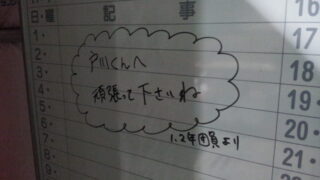 日・曜 記事
16
1・
17
2・
18
3・
19
4・
20・
5・
21・
6・
22・
7・
戸川くんへ
頑張って下さいね
1、2年団員より